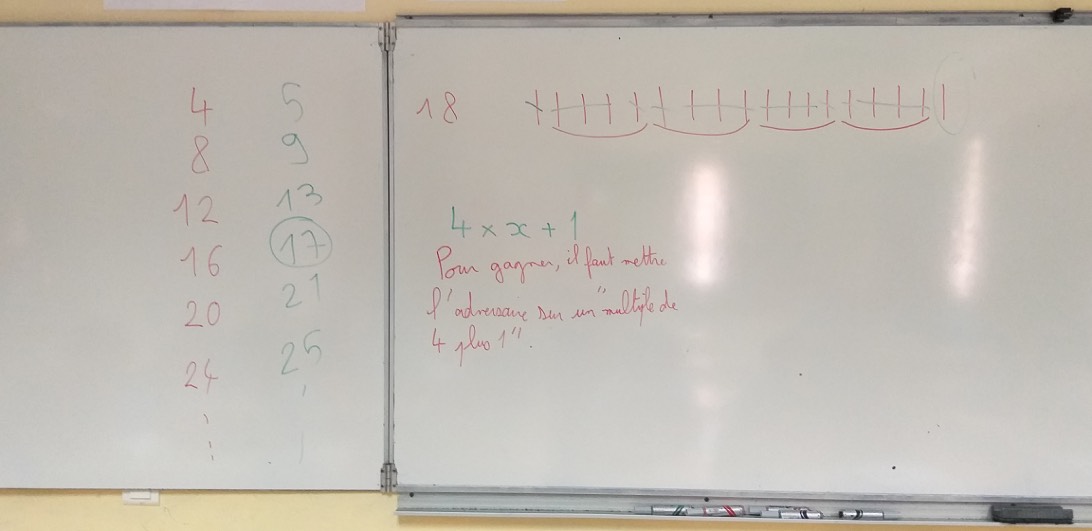 4 5
8 9
12 13
16 17
20 21
24 25
18
4 × x + 1
Pour gagner, il faut mettre
l'adversaire sur un "multiple de
4 plus 1".